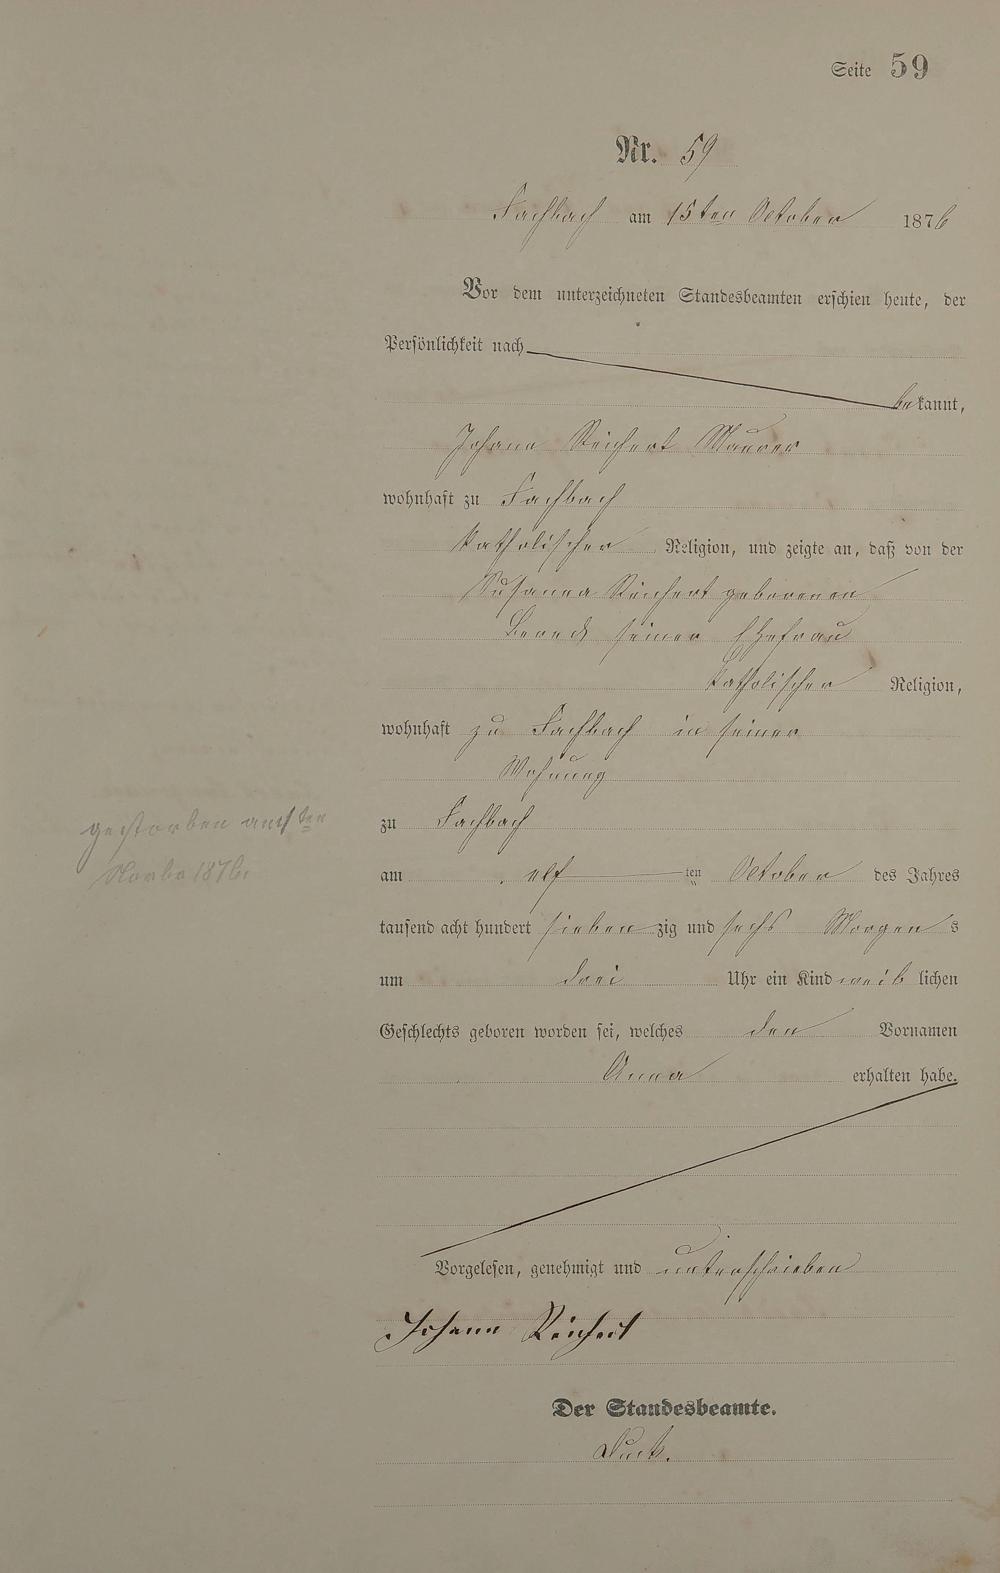 Seite 59
Nr. 59
Fachbach am 15ten October 1876
Vor dem unterzeichneten Standesbeamten erschien heute, der
Persönlichkeit nach
bekannt,
Johann Reichert Maurer
wohnhaft zu Fachbach
katholischer Religion, und zeigte an, daß von der
Susanna Reichert geborenen
seiner Ehefrau
katholischer Religion,
wohnhaft zu Fachbach in seiner
Wohnung
zu Fachbach
gestorben am ten
am elf ten October des Jahres
Novbr 1876
tausend acht hundert sieben zig und sechs Morgen s
um drei Uhr ein Kind weib lichen
Geschlechts geboren worden sei, welches den Vornamen
Anna erhalten habe.
Vorgelesen, genehmigt und unterschrieben
Johann Reichert
Der Standesbeamte.